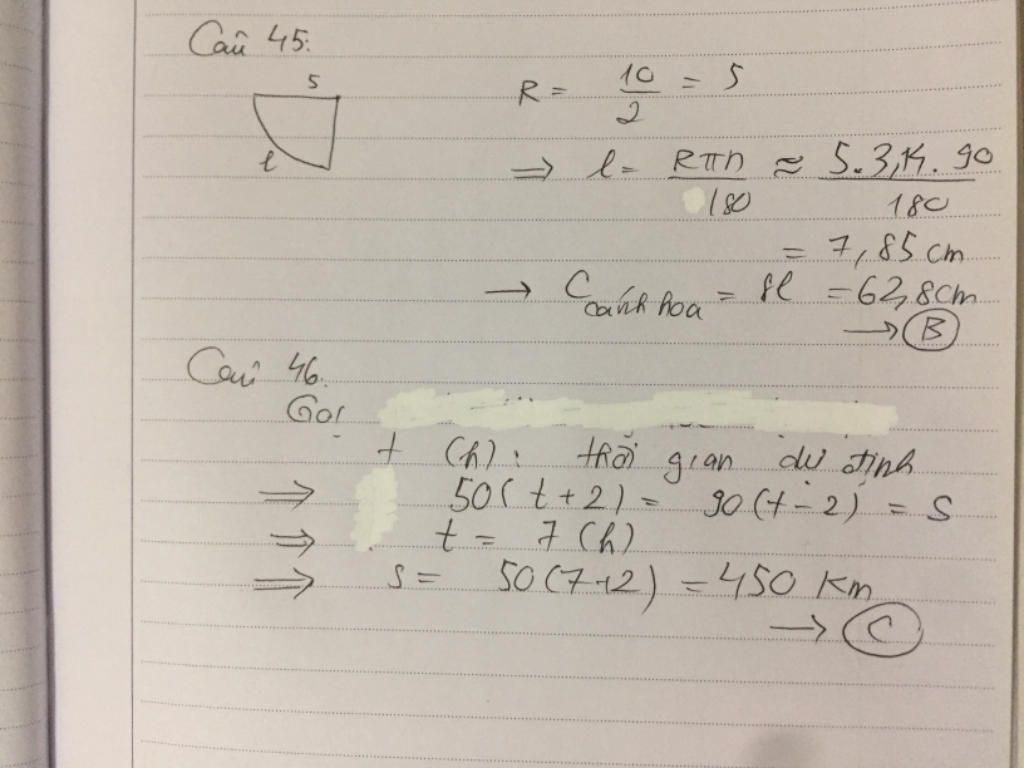 Câu 45:
5
l
R = 10/2 = 5
⇒ l = Rπn/180 ≈ 5.3,14.90/180
= 7,85 cm
→ C cánh hoa = 8l = 62,8cm
→ B
Câu 46.
Gọi
t (h): thời gian dự định
⇒ 50(t+2) = 90(t-2) = S
⇒ t = 7 (h)
⇒ S = 50(7+2) = 450 Km
→ C